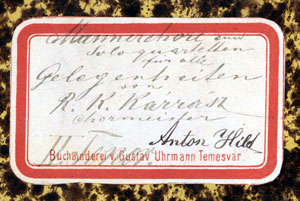 Männerchöre und
Soloquartetten
für alle
Gelegenheiten
von
R. K. Kárrász
Chormeister
Anton Hild
II. Tenor.
Buchbinderei v. Gustav Uhrmann Temesvar.